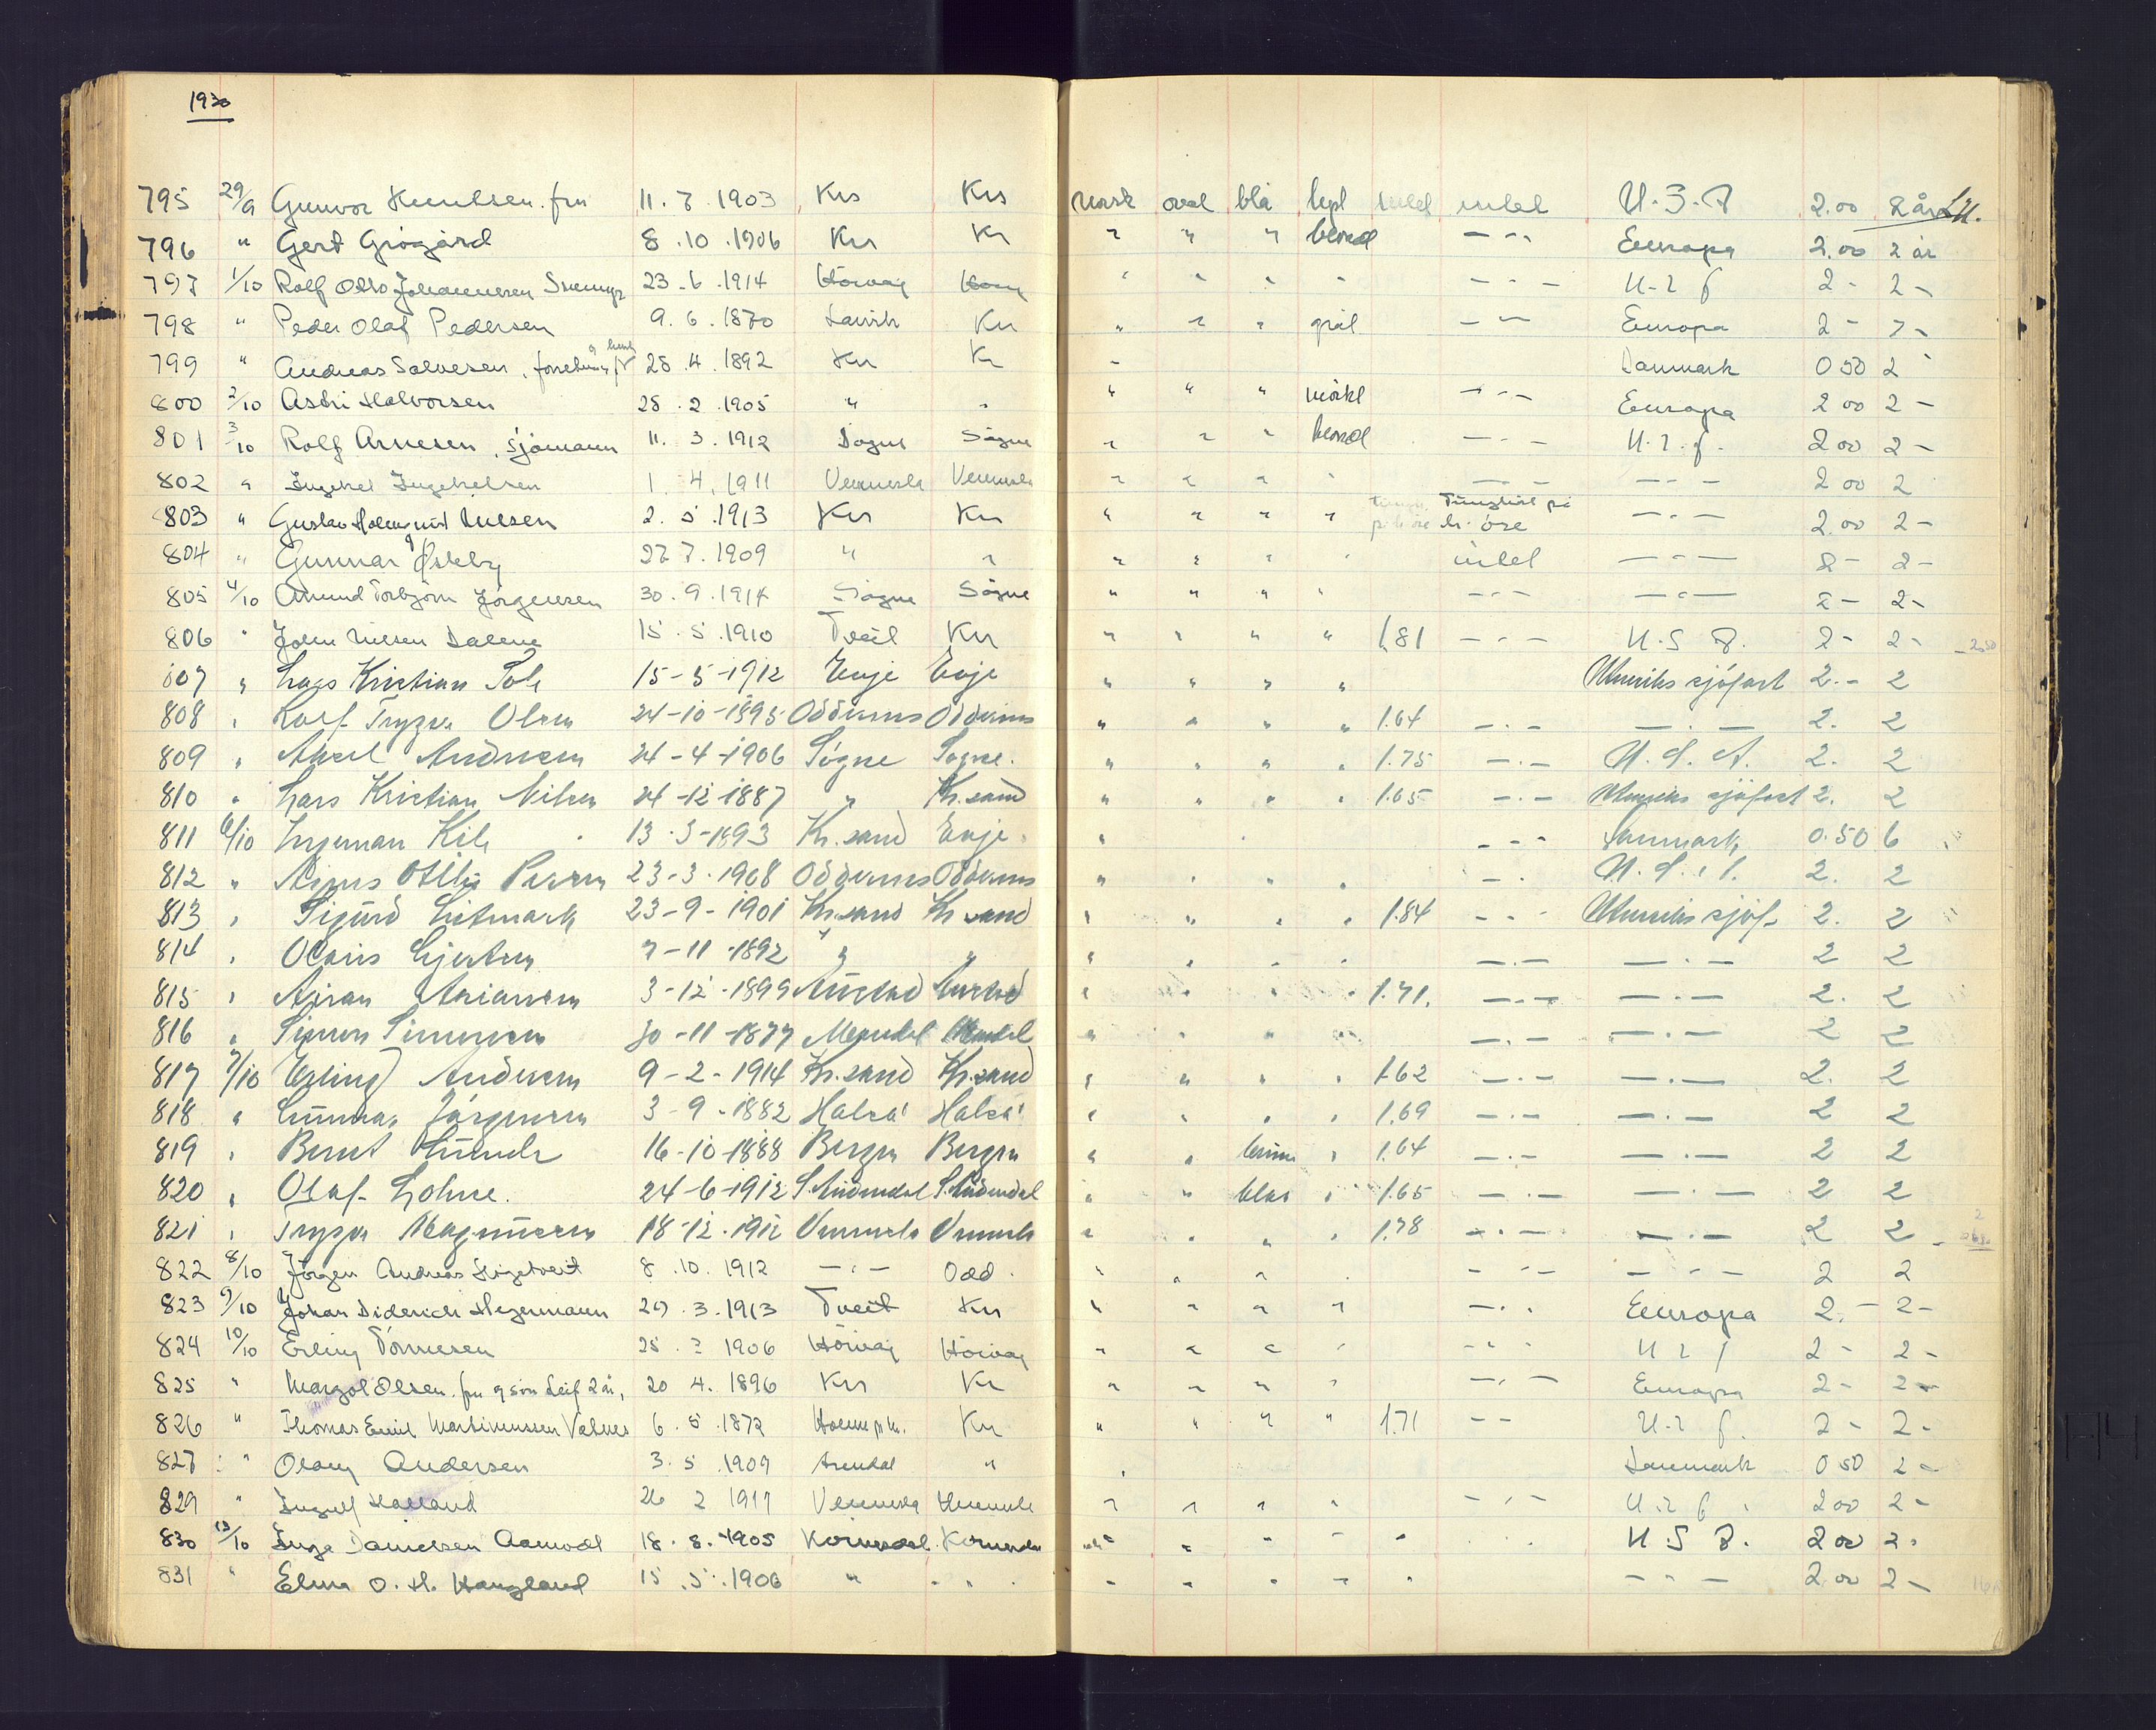 1930
795 29/9 Gunvor Knudsen. fru 11. 7. 1903 Krs Krs norsk oval blå intet U.S.A 2.00 2 år
796 " Gert Grögård 8. 10. 1906 Kr Kr " " " blond - " - Europa 2.00 2 år
797 1/10 Rolf Otto Johannesen 23. 6. 1914 Hövåg Höv " " " " - " - U. r f 2 - 2 -
798 " Peder Olaf Pedersen 9. 6. 1870 Larvik Kr " " " grål - " - Europa 2 -
799 " Andreas Salvesen, 28. 4. 1892 Kr Kr " Danmark 0 50 2
800 2/10 Astri Halvorsen 28. 2. 1905 " " " " " mörkt - " - Europa 2 00 2 -
801 3/10 Rolf Arnesen, sjömann 11. 3. 1912 Sögne Sögne " " " blond - " - U. r. f. 2 00 2 -
802 " Ingebret Ingebretsen 1. 4. 1911 Vennesla Vennesla " " " " - " - - " - 2 00 2
803 " Gustav Holmqvist Nilsen 2. 5. 1913 Kr Kr " " " " på h. öre - " - 2.00 2 -
804 " Gunnar Østeby 27. 7. 1909 " " " " " " intet - " - 2 - 2 -
805 4/10 Amund Torbjörn Jörgensen 30. 9. 1914 Sögne Sögne " " " " - " - - " - 2 - 2 -
806 " John Nilsen Dalene 15. 5. 1910 Tveit Kr " " " " 1.81 - " - U. S A. 2 - 2 -
807 " Lars Kristian 15-5-1912 Evje Evje " " " " Utenriks sjöfart 2. - 2
808 " Rolf Trygve Olsen 24-10-1895 Oddernes Oddernes " " " " 1.64 - " - - " - 2. 2
809 " Aksel Andresen 24-4-1906 Sögne Sögne. " " " " 1.75 - " - U. S. A. 2. 2
810 " Lars Kristian Nilsen 24-12-1887 " Kr.sand " " " " 1.65 - " - Utenriks sjöfart 2. 2
811 6/10 Ingeman Kile 13-3-1893 Kr.sand Evje " - " - Danmark 0.50 6
812 " 23-3-1908 Oddernes Oddernes " " " " - " U. S. A. 2. 2
813 " Sigurd 23-9-1901 Kr.sand Kr sand " " " " 1.84 - " - Utenriks sjöf. 2. 2
814 " Olaus Gjertsen 7-11-1892 " " " " " " - " - - " - 2 2
815 " 3-12-1899 Austad Austad " " " " 1.71. - " - - " - 2. 2
816 " Simon Simonsen 30-11-1877 Mandal Mandal " " " " - " - - " - 2 2
817 7/10 Erling Andresen 9-2-1914 Kr.sand Kr.sand " " " " 1.62 - " - - " - 2. 2
818 " Gunnar Jörgensen 3-9-1882 Halså Halså " " " " 1.69 - " - - " - 2 2
819 " Bernt 16-10-1888 Bergen Bergen " " brune " 1.64 - " - - " - 2 2
820 " Olaf Lohne. 24-6-1912 S.Audnedal S.Audnedal " " blaa " 1.65 - " - - " - 2 2
821 " Trygve Magnussen 18-12-1912 Vennesla Vennesla " " " " 1.78 - " - - " - 2 2
822 8/10 Jörgen Andreas 8. 10. 1912 - " - Odd. " " " " - " - - " - 2 2
823 9/10 Johan Diderich Hegermann 29. 3. 1913 Tveit Kr " " " " - " - Europa 2. - 2 -
824 10/10 Erling Tönnesen 25. 2 1906 Hövåg Hövåg " " " " - " - U r f 2 - 2 -
825 " Margot Olsen. fru og sön Leif 2 år, 20 4. 1896 Kr Kr " " " " - " - Europa 2 - 2 -
826 " Thomas Emil Martinussen Valnes 6. 5. 1872 Kr " " " " 1.71 - - U. r f. 2 - 2 -
827 " Olany Andersen 3. 5. 1909 Arendal " " Danmark 0 50 2 -
829 " Ingulf Haaland 26 2 1911 Vennesla Vennesla " " " " - " - U. r f. 2 00 2 -
830 13/10 Inga Danielsen Aamodt 18. 8. 1905 " " " " " U. S A. 2 00 2 -
831 " Elma O. H. Haugland 15. 5. 1906 " " " " " " " - " - 2 00 2 -